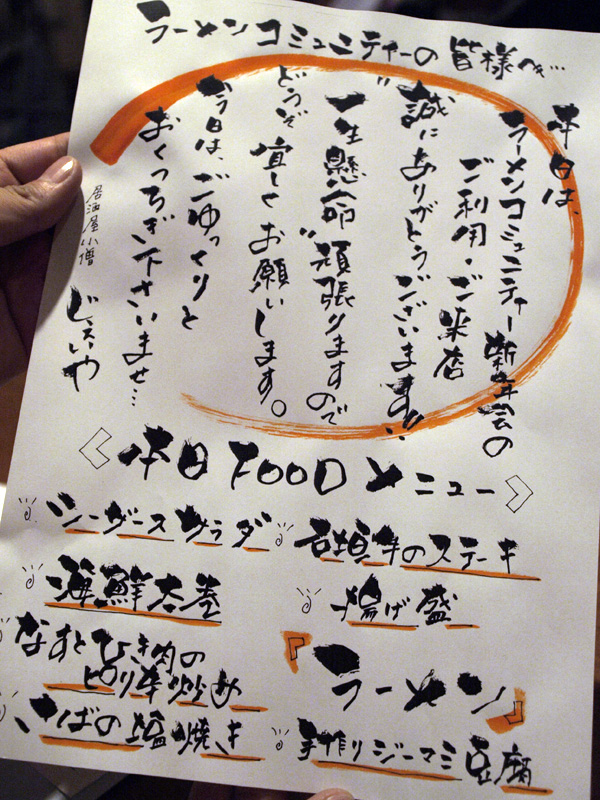 ラーメンコミュニティーの皆様へ…
本日は、
ラーメンコミュニティー新年会の
ご利用・ご来店
誠にありがとうございます!!
一生懸命頑張りますので
どうぞ宜しくお願いします。
今日は、ごゆっくりと
おくつろぎ下さいませ…
居酒屋小僧
じぇいや
〈本日FOODメニュー〉
シーザースサラダ
海鮮太巻
なすとひき肉の
ピリ辛炒め
さばの塩焼き
石垣牛のステーキ
揚げ盛
『ラーメン』
手作りジーマミ豆腐